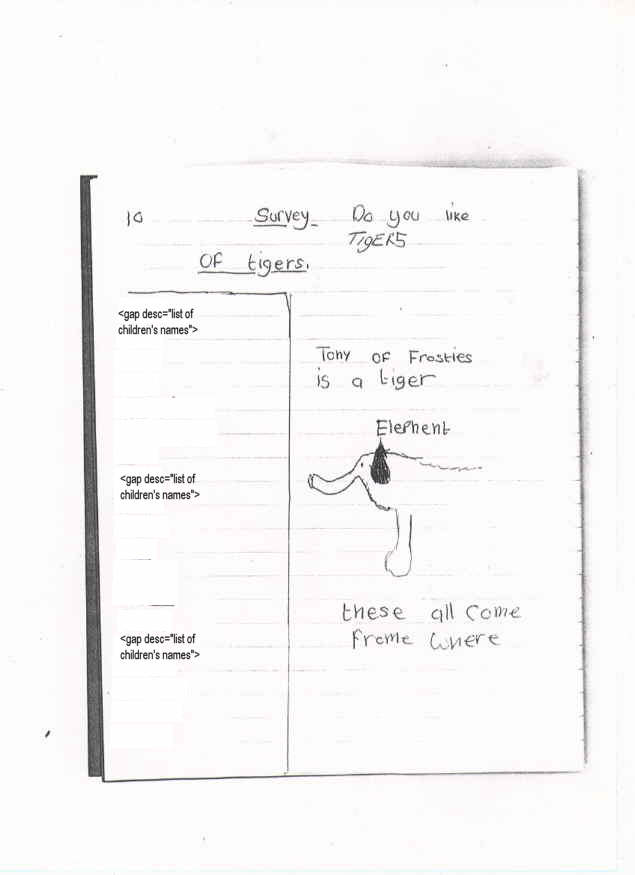 10 Survey Do you like
TIgERS
OF tigers.
<gap desc="list of
children's names">
<gap desc="list of
children's names">
<gap desc="list of
children's names">
Tony of Frosties
is a tiger
Elephent
these all come
frome where